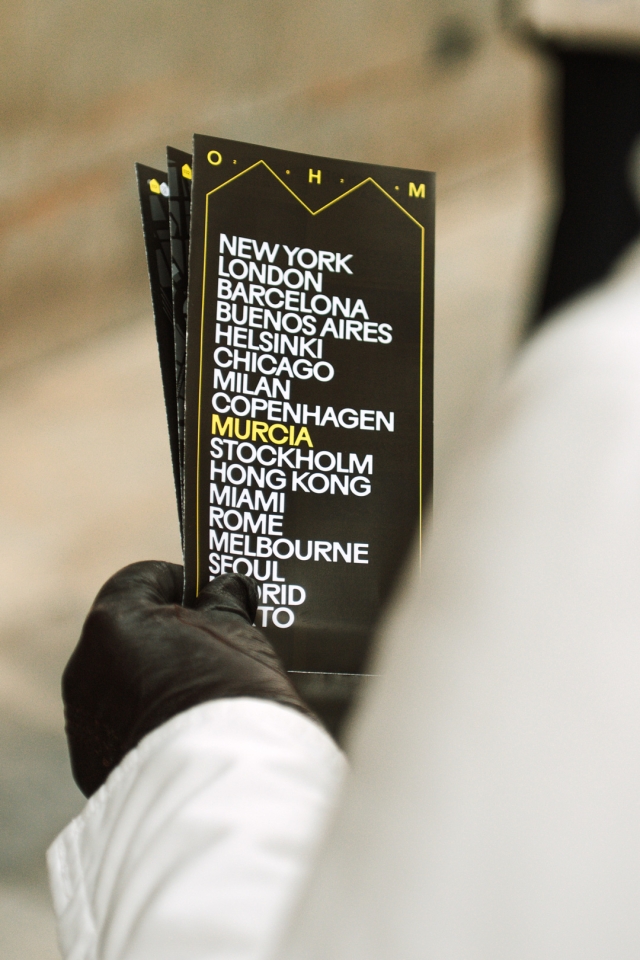 O H M
NEW YORK
LONDON
BARCELONA
BUENOS AIRES
HELSINKI
CHICAGO
MILAN
COPENHAGEN
MURCIA
STOCKHOLM
HONG KONG
MIAMI
ROME
MELBOURNE
SEOUL